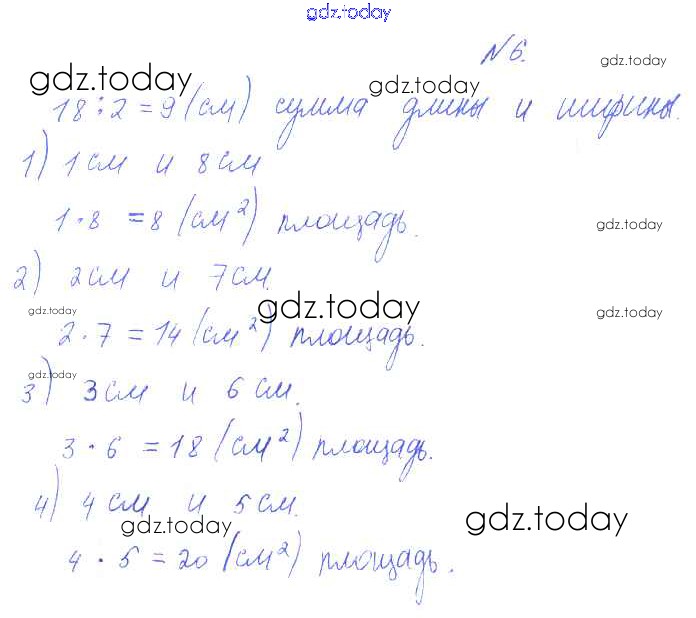 gdz.today
№6.
gdz.today
gdz.today gdz.today
18:2=9 (см) сумма длины и ширины.
1) 1 см и 8 см
1·8 =8 (см²) площадь.
gdz.today
2) 2см и 7см.
gdz.today gdz.today gdz.today
2·7 =14 (см²) площадь.
gdz.today
3) 3 см и 6 см.
3·6 =18 (см²) площадь.
4) 4 см и 5 см.
gdz.today gdz.today
4·5 =20 (см²) площадь.